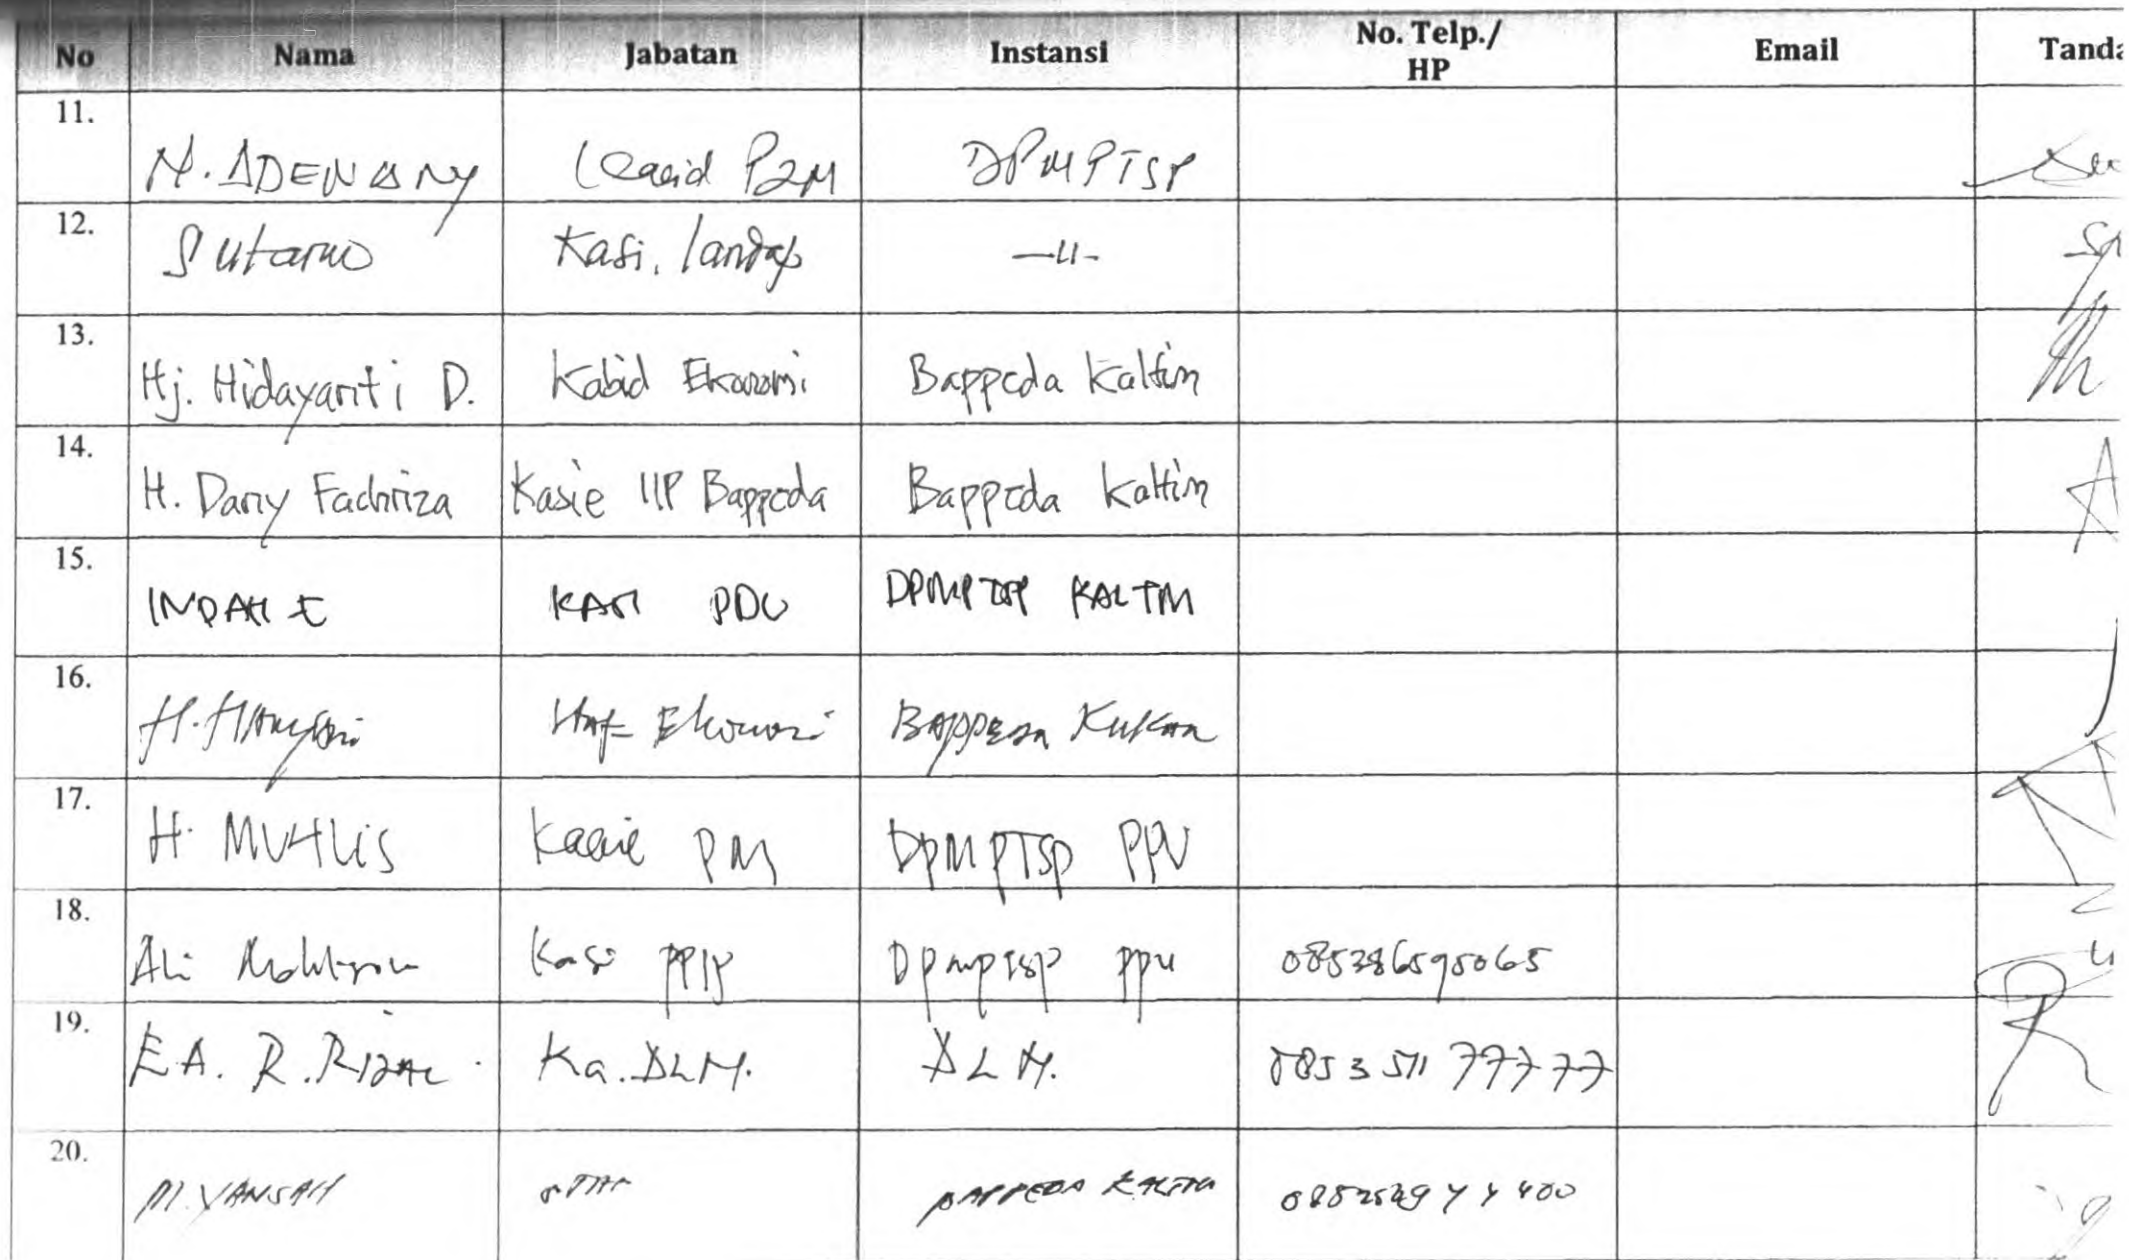 No Nama Jabatan Instansi No. Telp./ HP Email Tanda
11. N. ADEWANY P2M DPMPTSP
12. Sutarno Kasi. —11-
13. Hj. Hidayanti D. Kabid Ekonomi Bappeda Kaltim
14. H. Dany Fachriza Kasie Bappeda Bappeda Kaltim
15. INDAH E KASI PDU DPMPTSP KALTIM
16. H. Ekonomi Bappeda Kukar
17. H. MUHLIS Kasie PM DPMPTSP PPU
18. Ali Kasi DPMPTSP PPU 085386595065
19. E.A. R. RIZAL. Ka. DLM. DLM. 0853 511 77777
20. M. YANSAH BAPPEDA KALTIM